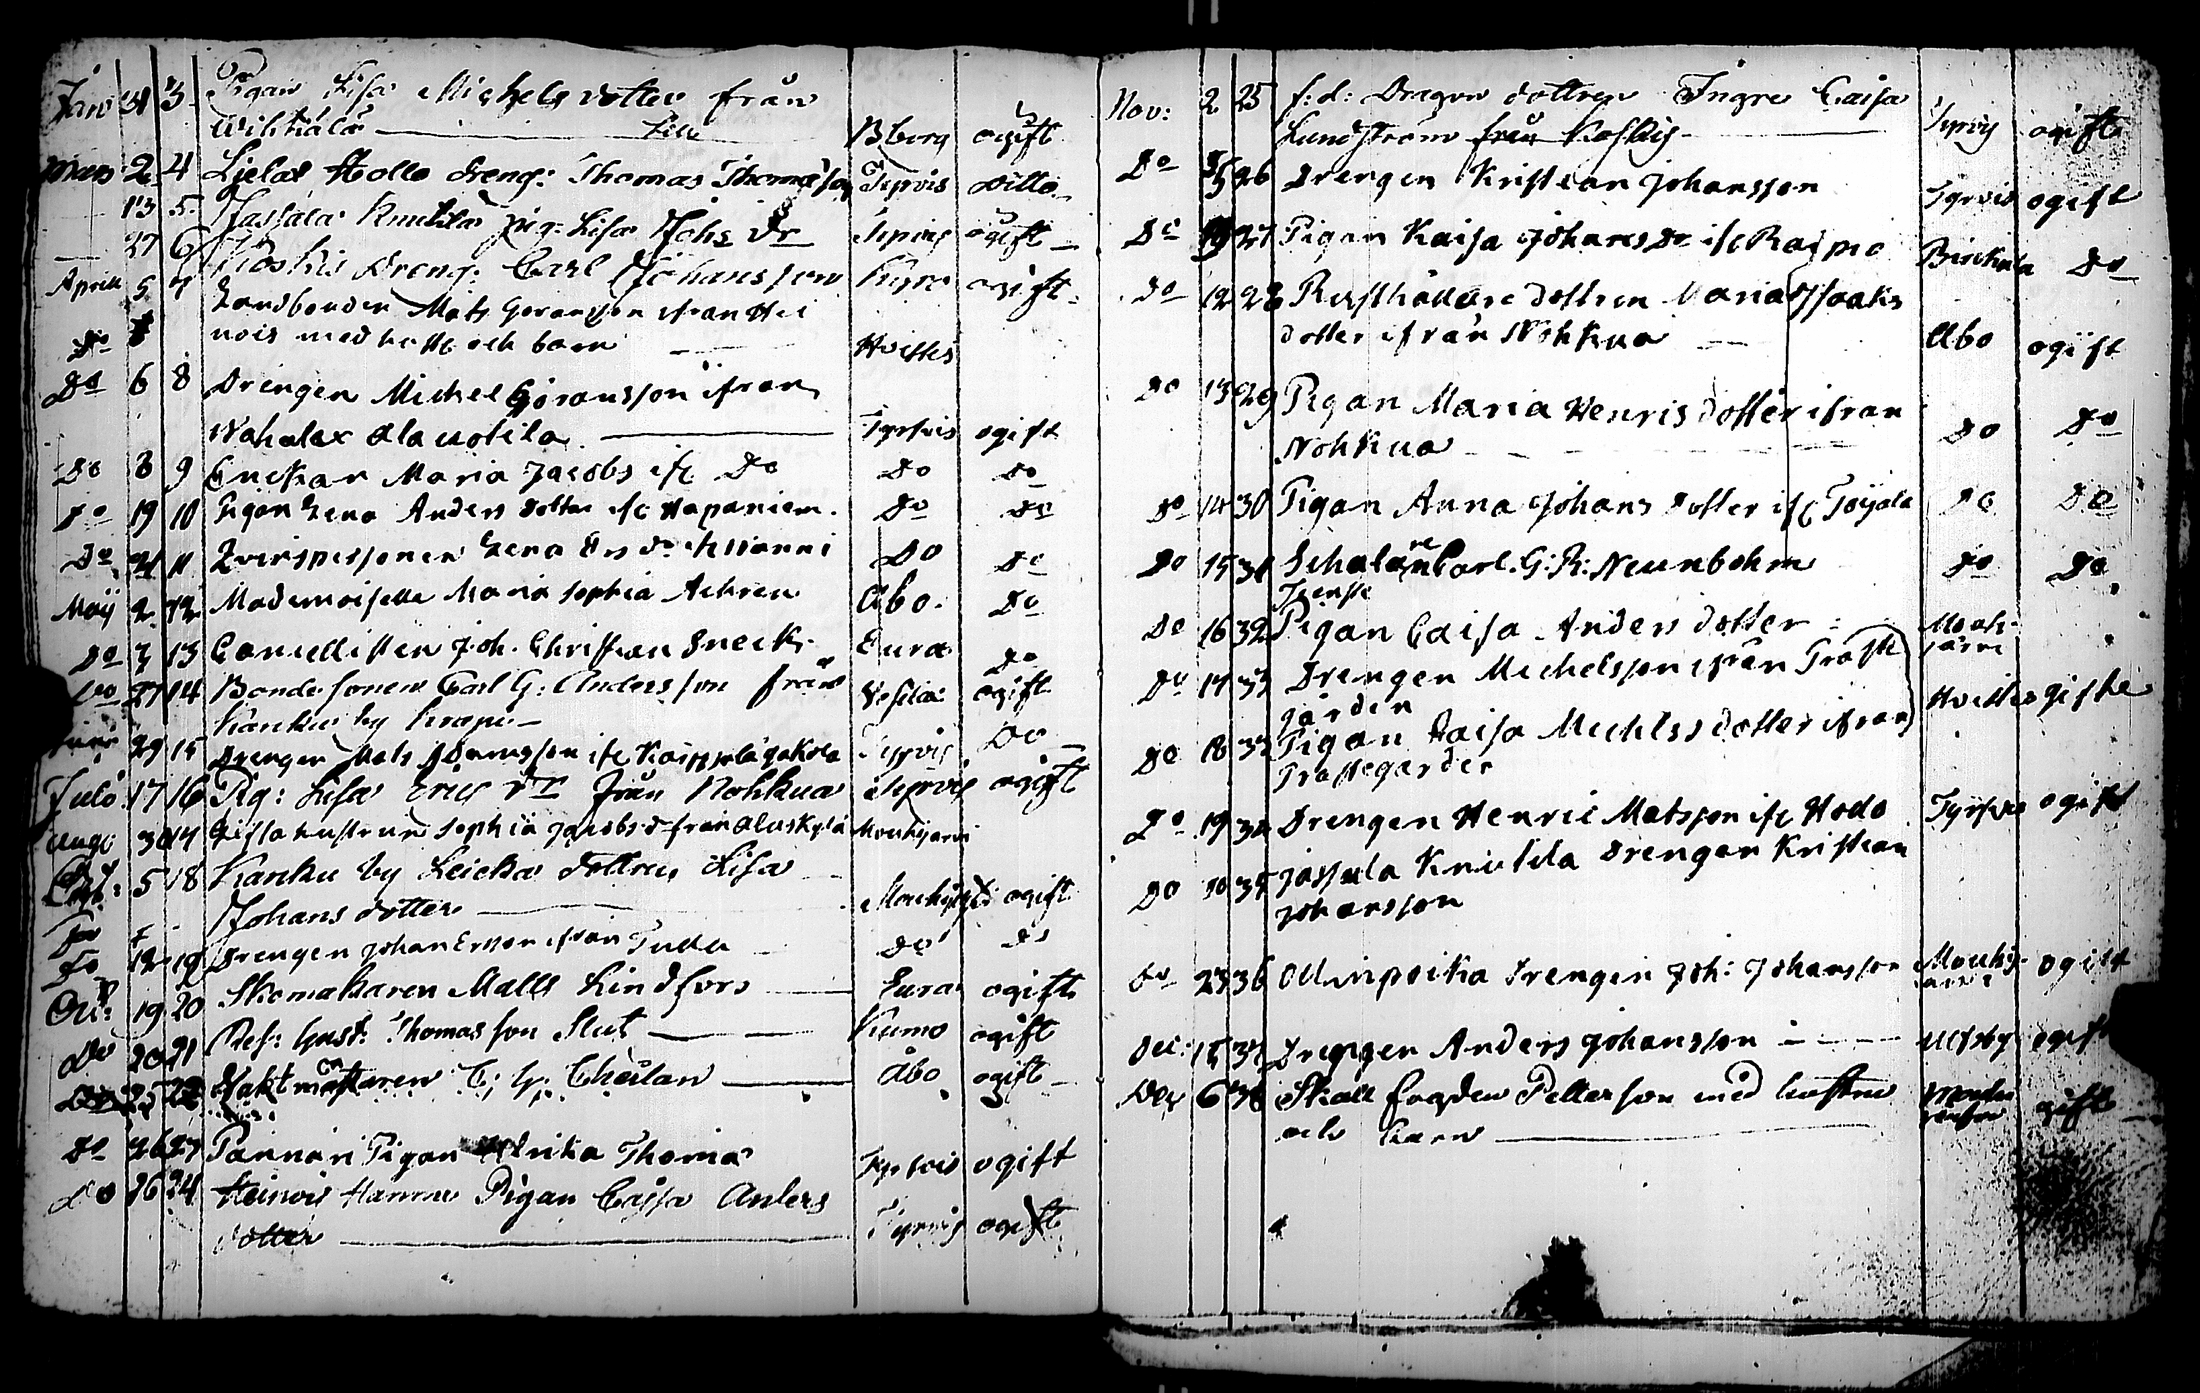 Janu 31 3 Pigan Lisa Michels dotter från
Wihkala Bberg ogift
Mars 2 4 Ljelax Hollo dreng: Thomas Thomasson Tyrvis ditto
13 5 Jassala Knutila pig: Lisa Johs dr Tyrvis ogift
27 6 Koskis Dreng: Carl Johansson Kyro ogift
Aprill 5 7 Landbonden Mats Göransson ifrån Hei
Do nois med hust och barn Hvittis
Do 6 8 Drengen Michel Göransson ifrån
Nohalax Alauotila Tyrvis ogift
Do 8 9 Enckan Maria Jacobs if Do Do Do
Do 19 10 Pigan Lena Anders dotter if Hapaniem. Do Do
Do 21 11 Qvinspersonen Lena Do Do
Maij 2 12 Mademoiselle Maria Sophia Achren Åbo Do
Do 3 13 Cancellisten Joh. Christian Sneck Eura Do
Do 27 14 Bonde sonen Carl G: Andersson från Vesila ogift
Kanku by
29 15 Drengen Mats Adamsson if Tyrvis Do
Julii 17 16 Pig: Lisa Erics dr från Nohkua Tyrvis ogift
Augi 30 17 Gifta hustrun Sophia Jacobs d från Mouhijarvi
5 18 Kanku by Leicka dottren Lisa
Johans dotter Mouhij: ogift
Do 12 19 Drengen Johan Ersson ifrån Do Do
Oct: 19 20 Skomakaren Matts Lindfors Eura ogift
Do 20 21 Ref: Gust: Thomasson Slut Kumo ogift
25 22 Vaktmästaren C: G: Åbo ogift
Do 26 23 Pannari Pigan Ulrika Thomas Tyrvis ogift
Do 26 24 Heinois Hannu Pigan Caisa Anders
dotter Tyrvis ogift
Nov: 2 25 f: d: Dragon dottren Ingre Caisa
Lundström från Koskis Tyrvis ogift
Do 26 Drengen Kristian Johansson Tyrvis ogift
Do 27 Pigan Kaisa Johans Dr if Raipio Birckala Do
Do 12 28 Rusthållare dottren Maria Isaaks
dotter ifrån Nohkua Åbo ogift
Do 13 29 Pigan Maria Henris dotter ifrån
Nohkua Do Do
Do 14 30 Pigan Anna Johans dotter if Toijola Do Do
Do 15 31 Carl. G: R: Neunbohm Do Do
Do 16 32 Pigan Caisa Anders dotter Mouhi-
järvi
Do 17 33 Drengen Michelsson ifrån Träsk
gården Hvittis gifte
Do 18 33 Pigan Kaisa Michels dotter ifrån
Do 19 34 Drengen Henric Matsson if Hodo Tyrvis ogift
Do 35 Jassala Knutila Drengen Kristian
Johansson
Do 23 36 Drengen Joh: Johansson Mouhi-
järvi ogift
Dec: 37 Drengen Anders Johansson Ulfsby ogift
6 38 Skall fogden Petterson med hustru
och barn gift